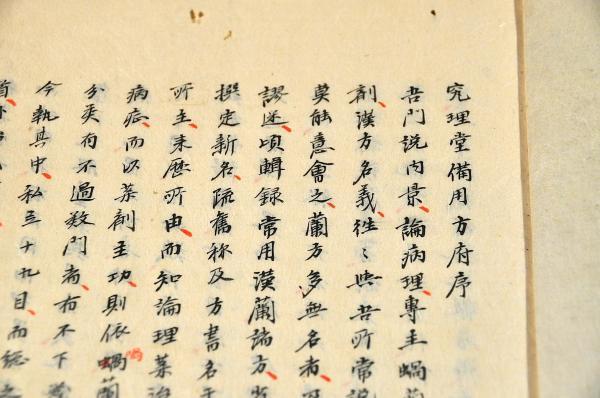 究理堂備用方府序
吾門説内景論病理專主蝸蘭
創漢方名義往〻與吾所常説
莫能意會之蘭方多無名者
謬迷頃輯録常用漢蘭諸方
撰定新名疏舊称及方書名
所主未歴所由而知論理藥
病症而以藥劑主功則依蝸蘭
分類有不過殺門者有不下
今執其中私三十九目而総之